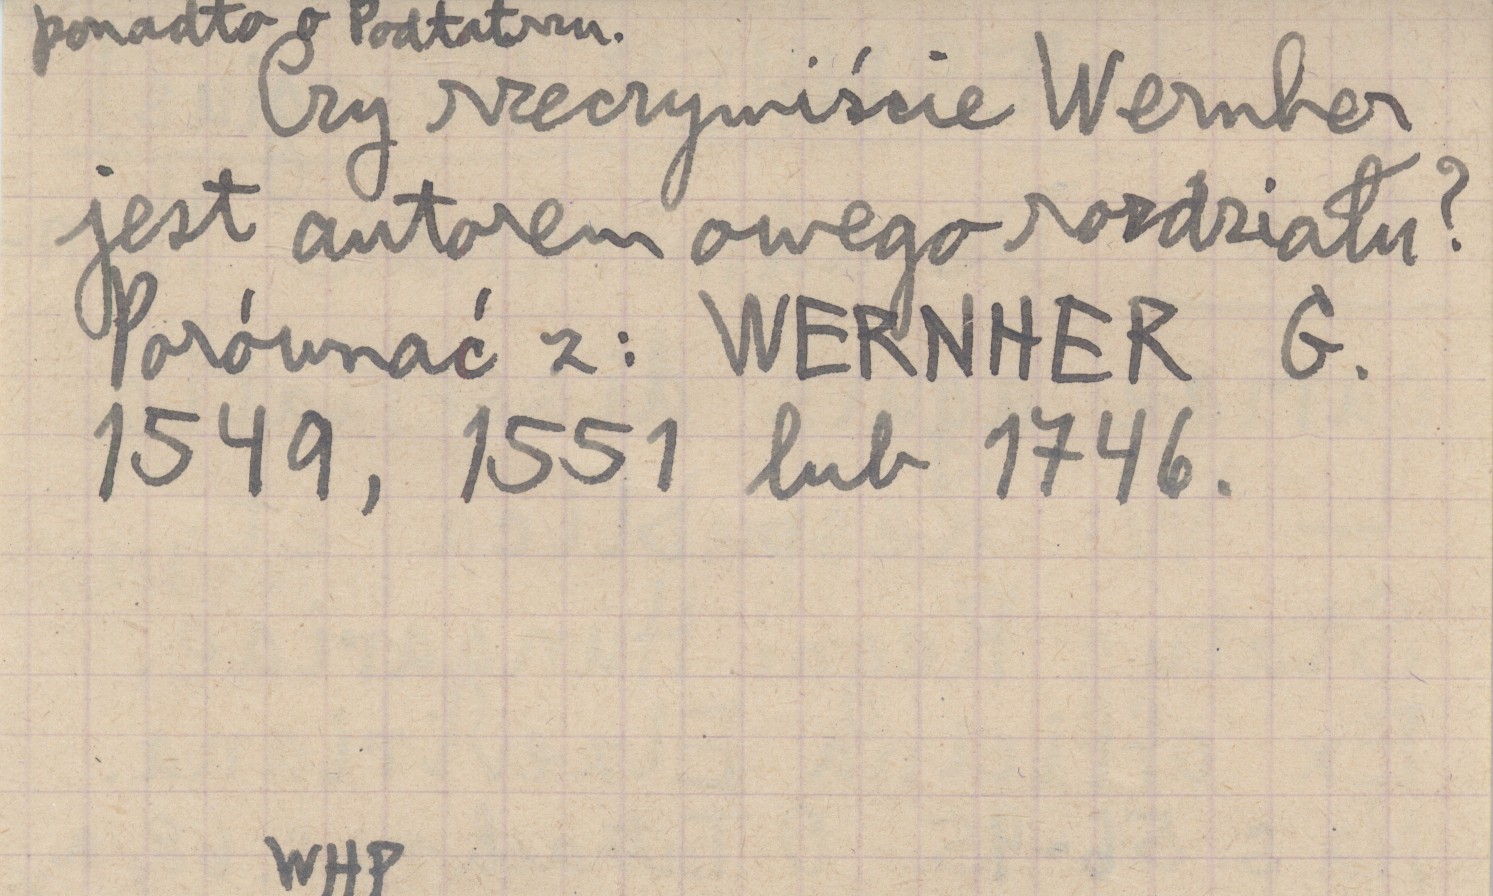 ponadto o Podtatrzu.
Czy rzeczywiście Wernher
jest autorem owego rozdziału?
Porównać z: WERNHER G.
1549, 1551 lub 1746.
WHP